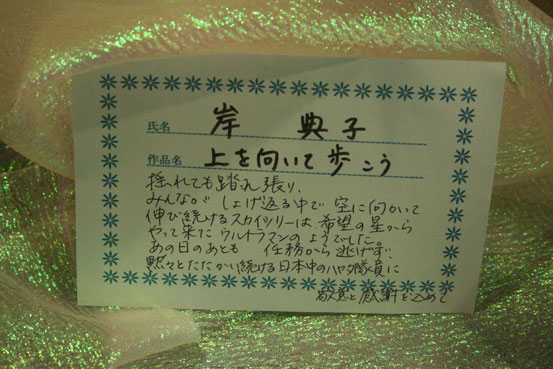 氏名 岸 典子
作品名 上を向いて歩こう
揺れても踏ん張り、
みんなが しょげ返る中で 空に向かって
伸び続けるスカイツリーは 希望の星から
やって来た ウルトラマンのようでした。
あの日のあとも 任務から逃げず
黙々とたたかい続ける日本中のハヤタ隊員に
敬意と感謝を込めて